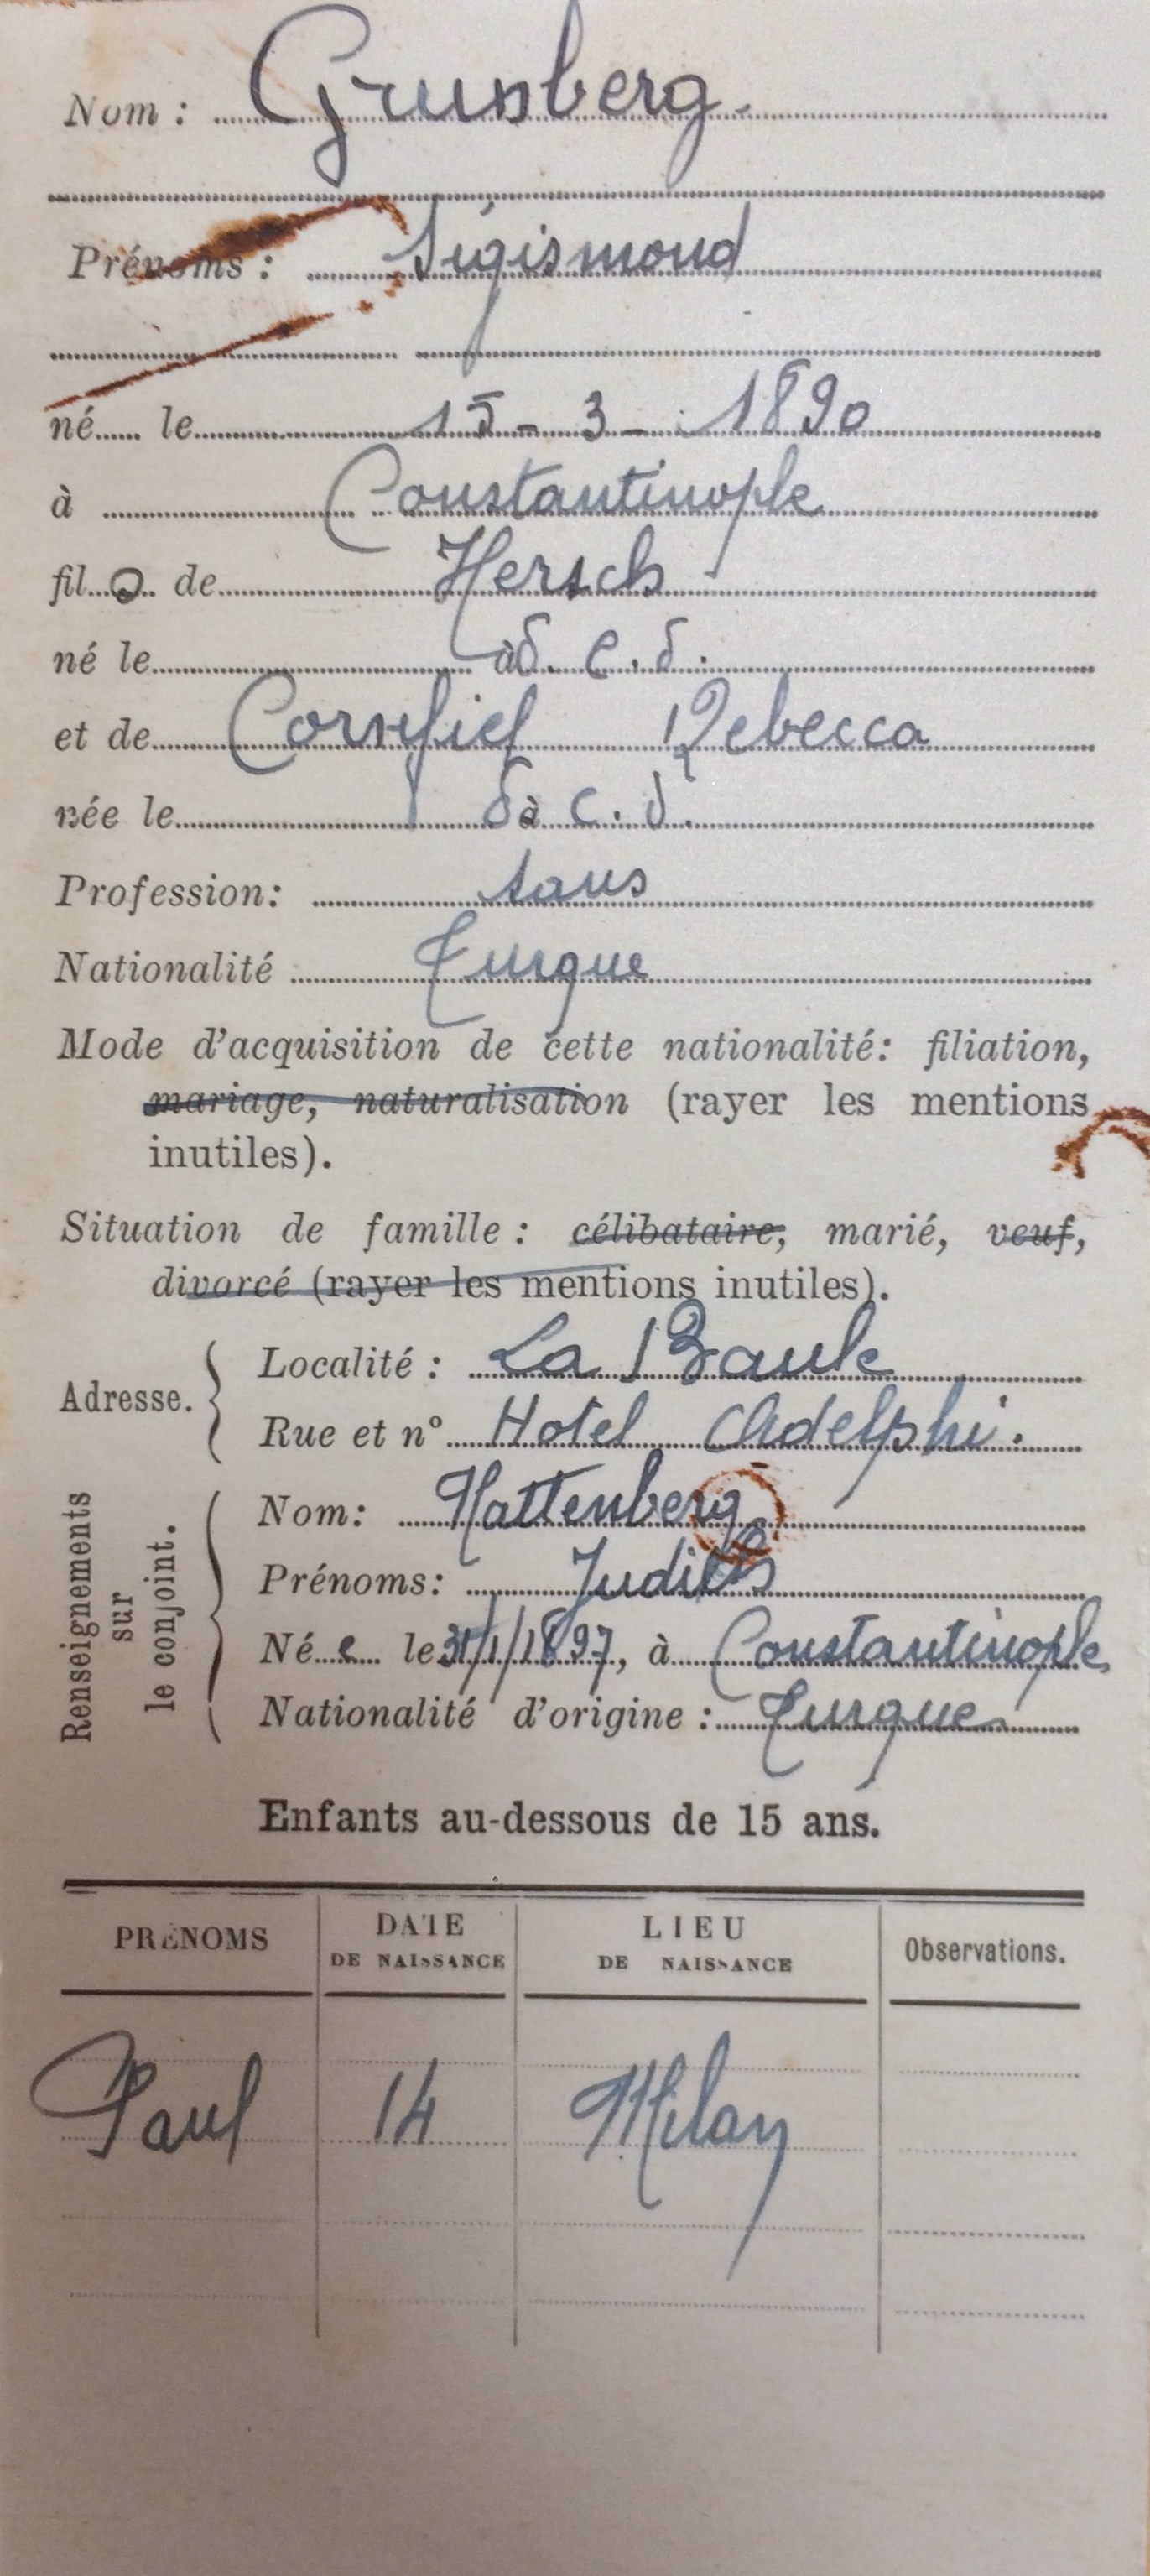 Nom : Grunberg.
Prénoms : Sigismond
né le 15 - 3 - 1890
à Constantinople
fils de Hersch
né le à d. c. d.
et de Cornfiel Rebecca
née le d à c. d.
Profession: sans
Nationalité Turque
Mode d'acquisition de cette nationalité: filiation,
mariage, naturalisation (rayer les mentions
inutiles).
Situation de famille : célibataire, marié, veuf,
divorcé (rayer les mentions inutiles).
Adresse.
Localité : La Baule
Rue et n° Hotel Adelphi.
Renseignements sur le conjoint.
Nom: Hattenberg
Prénoms: Judith
Née le 31/1/1897, à Constantinople
Nationalité d'origine : Turque
Enfants au-dessous de 15 ans.
PRÉNOMS DATE DE NAISSANCE LIEU DE NAISSANCE Observations.
Paul 14 Milan